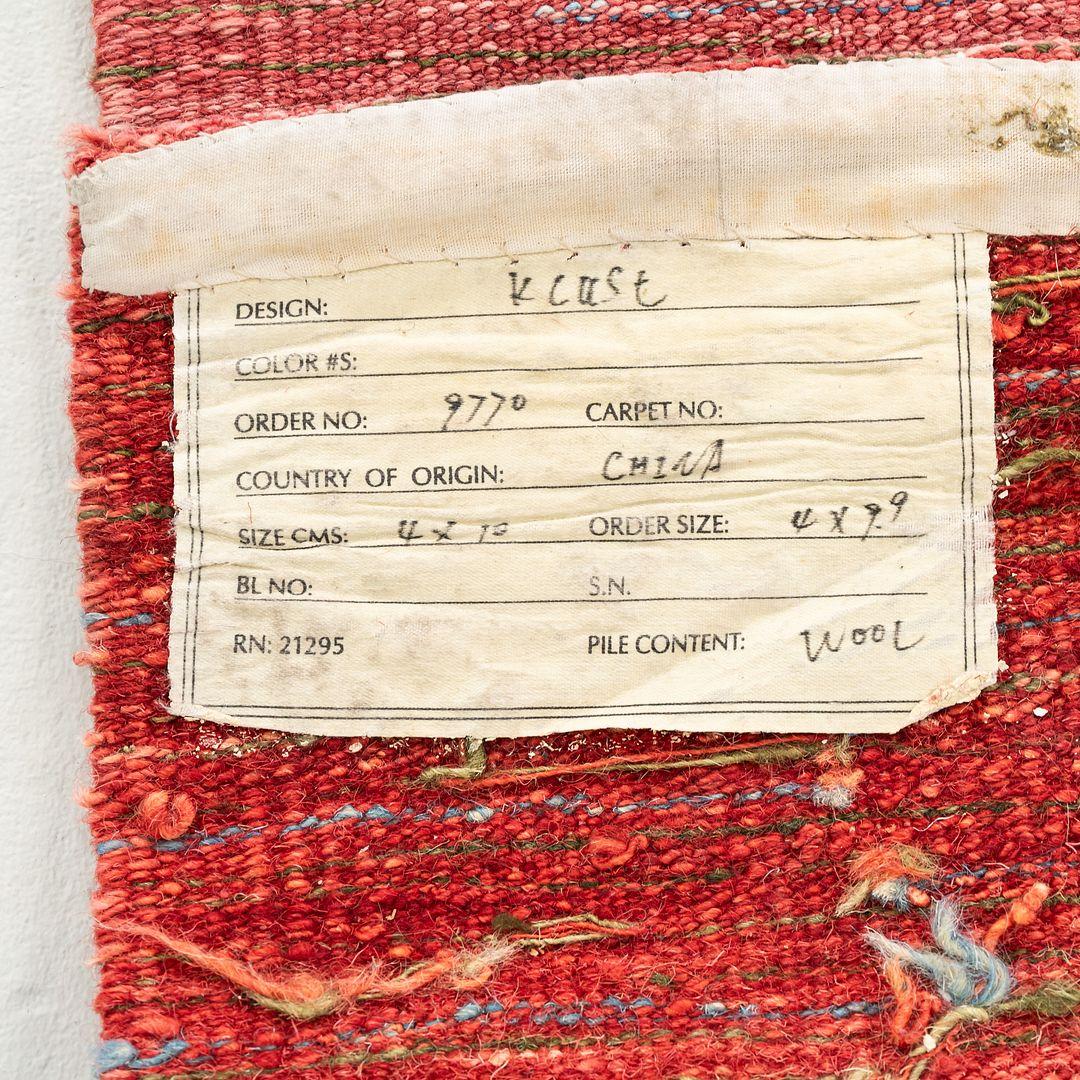 DESIGN:
COLOR #S:
ORDER NO: 9770 CARPET NO:
COUNTRY OF ORIGIN: CHINA
SIZE CMS: 4 x 10 ORDER SIZE: 4 x 9.9
BL NO: S.N.
RN: 21295 PILE CONTENT: WOOL